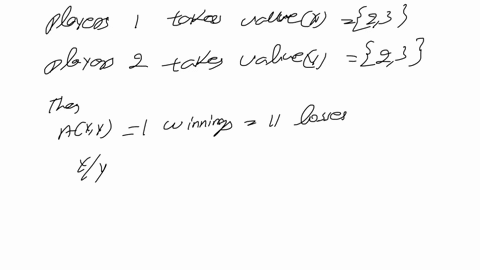 players 1 takes value(x) = {2,3}
players 2 takes value(y) = {2,3}
Then
A(x,y) = 1 winnings = 11 loses
x/y